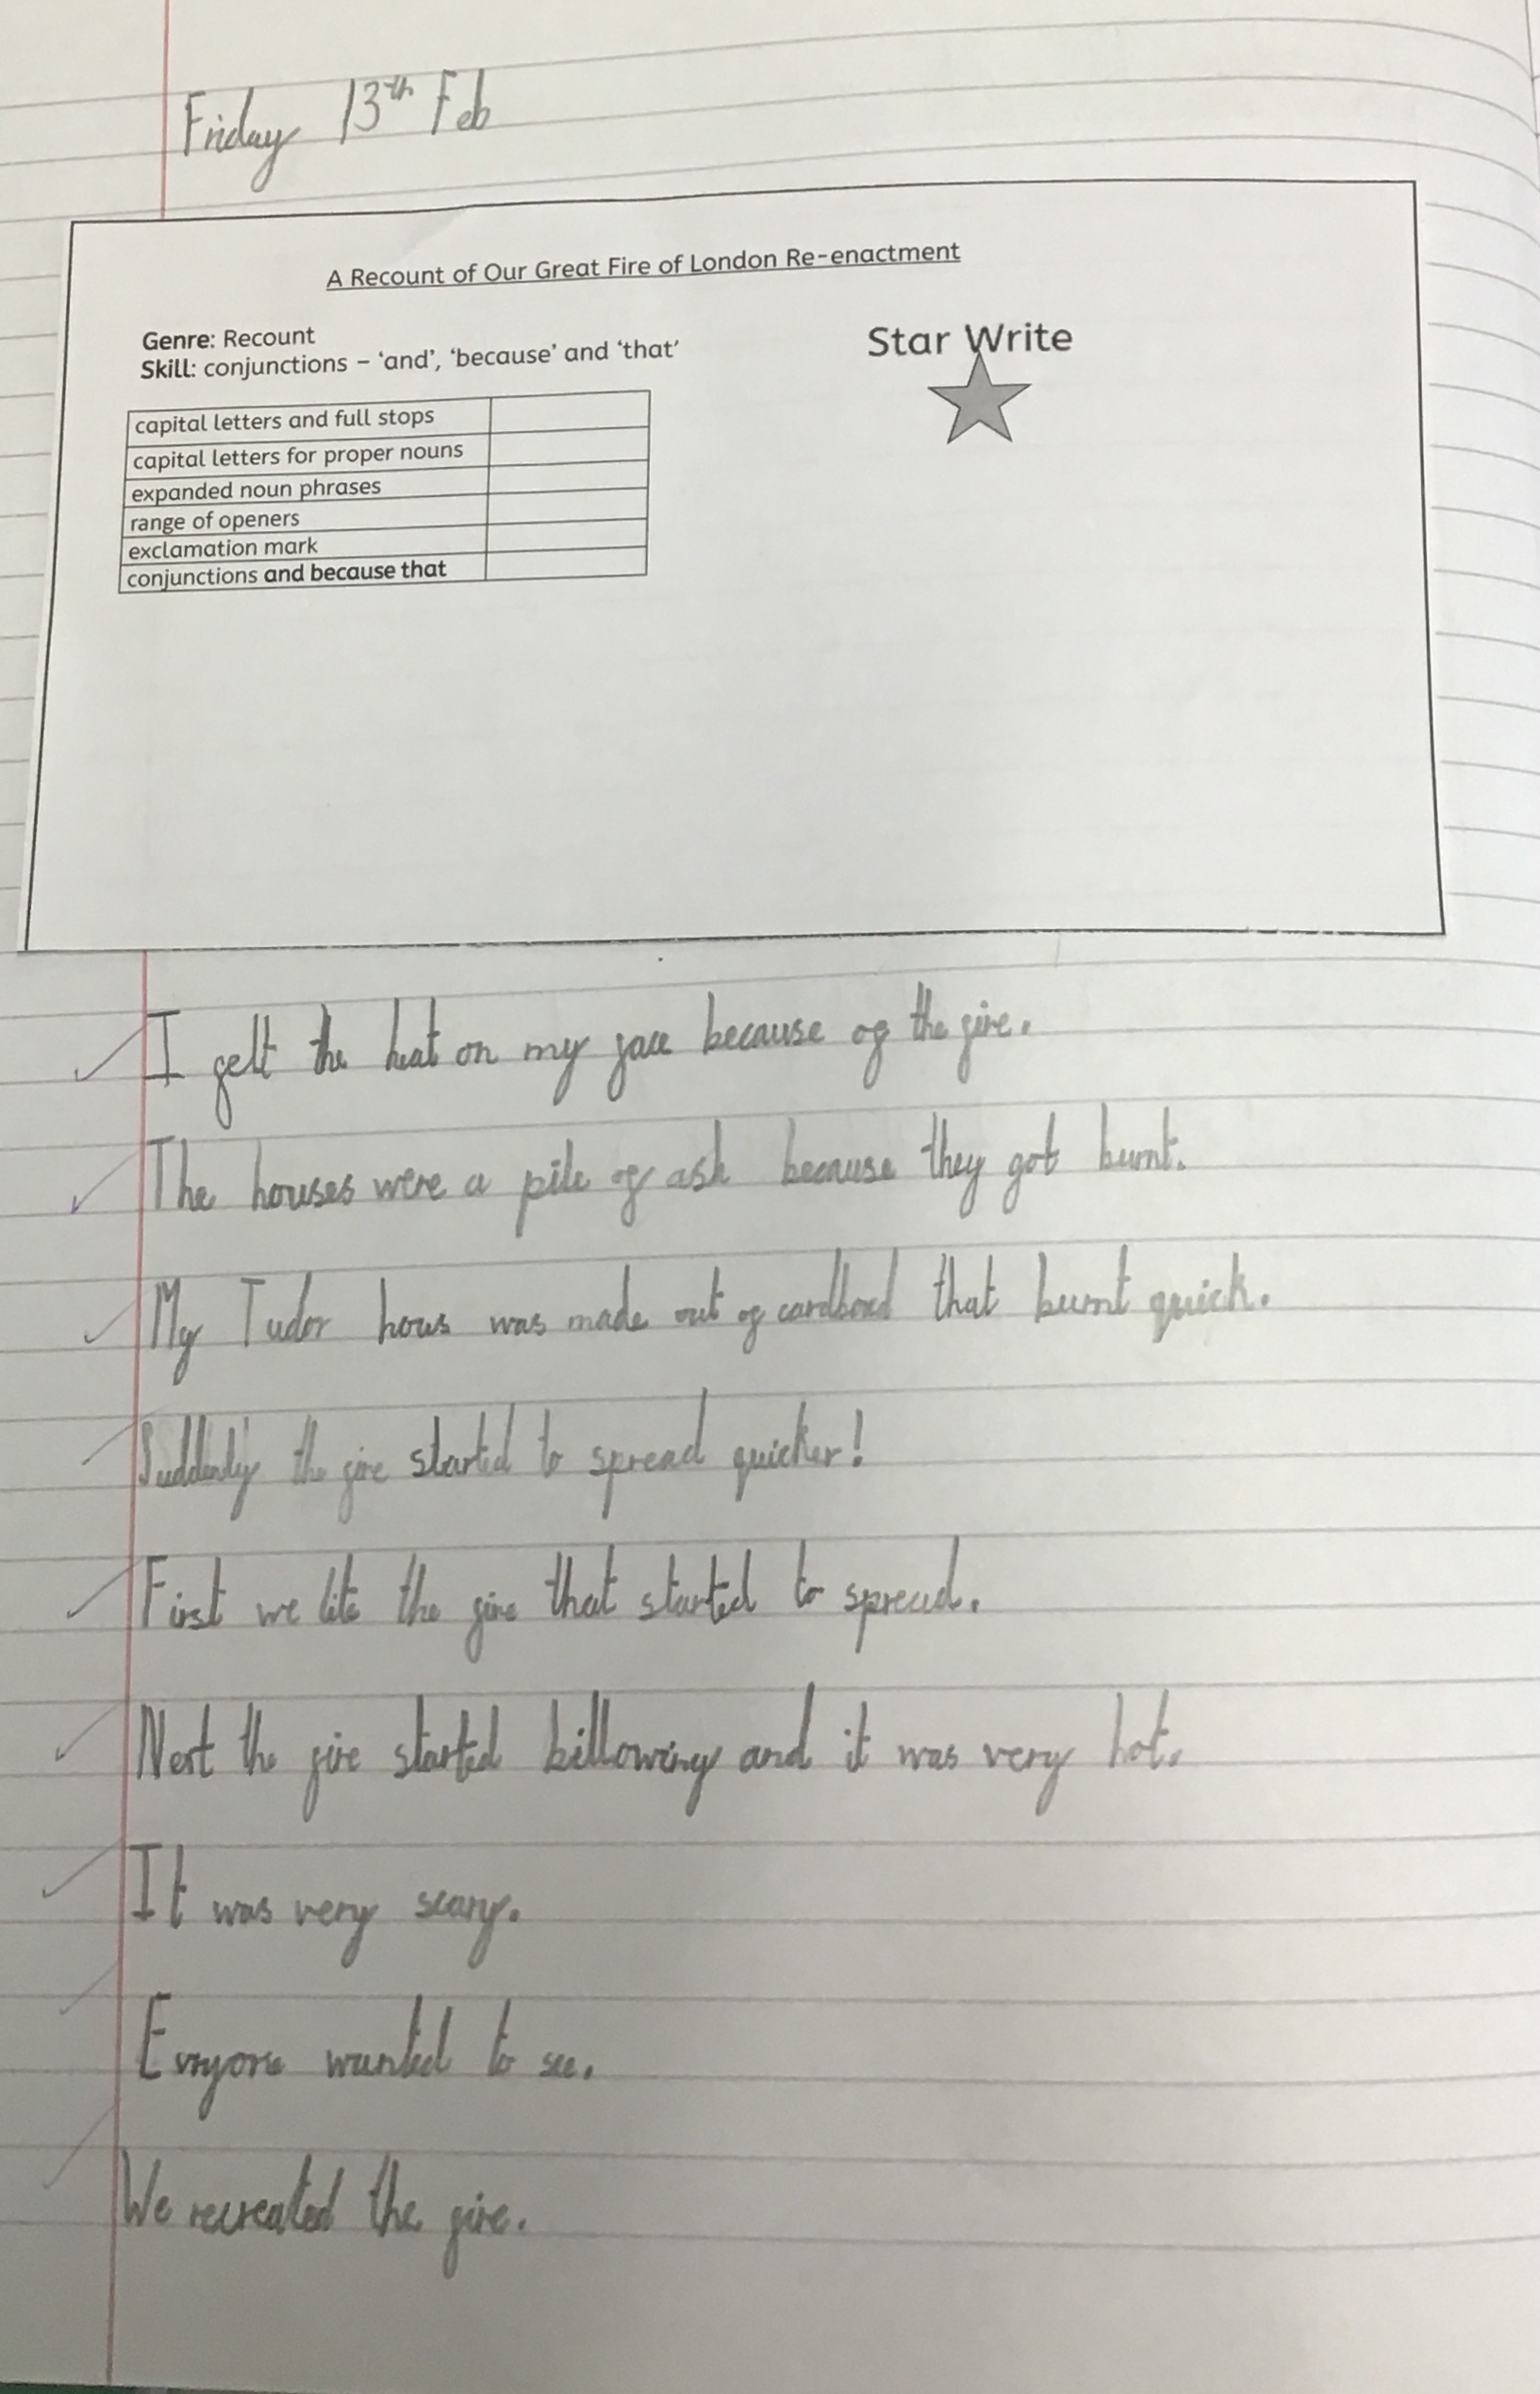 Friday 13th Feb
A Recount of Our Great Fire of London Re-enactment
Genre: Recount
Skill: conjunctions – ‘and’, ‘because’ and ‘that’
Star Write
capital letters and full stops
capital letters for proper nouns
expanded noun phrases
range of openers
exclamation mark
conjunctions and because that
I felt the heat on my face because of the fire.
The houses were a pile of ash because they got burnt.
My Tudor hous was made out of cardbord that burnt quick.
Suddenly the fire started to spread quicker!
First we lite the fire that started to spread.
Next the fire started billowing and it was very hot.
It was very scary.
Evryone wanted to see.
We recreated the fire.